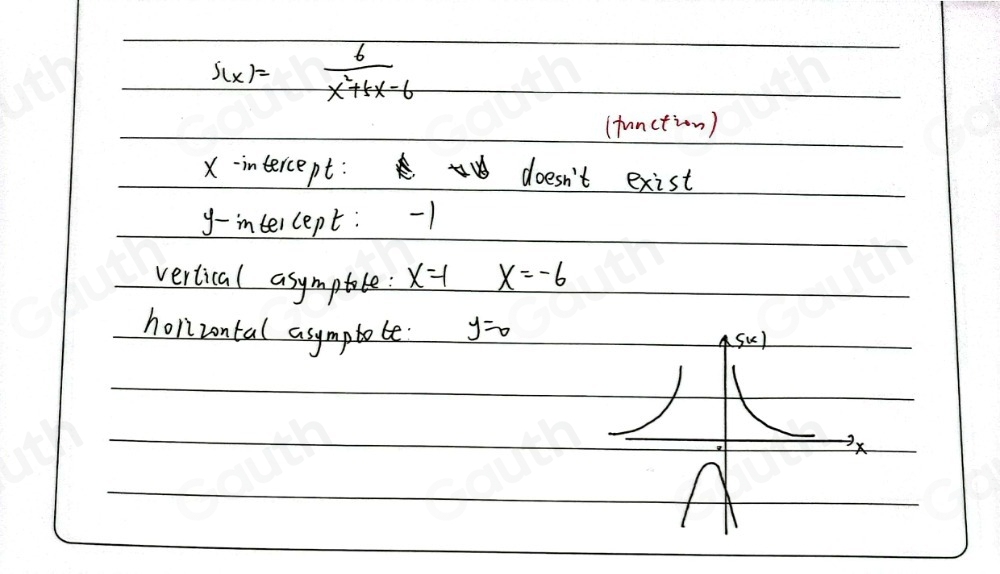 S(x)= 6 / x²+5x-6
(function)
x-intercept: doesn't exist
y-intercept: -1
vertical asymptote: x=1 x=-6
horizontal asymptote: y=0
S(x)
x
Gauth